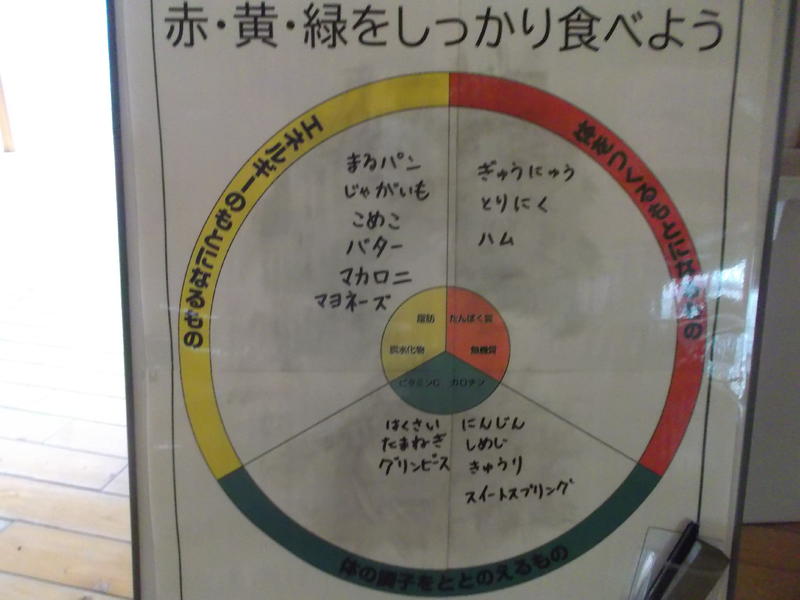 赤・黄・緑をしっかり食べよう
エネルギーのもとになるもの
まるパン
じゃがいも
こめこ
バター
マカロニ
マヨネーズ
体をつくるもとになるもの
ぎゅうにゅう
とりにく
ハム
脂肪
炭水化物
たんぱく質
無機質
ビタミンC
カロチン
はくさい
たまねぎ
グリンピース
にんじん
しめじ
きゅうり
スイートスプリング
体の調子をととのえるもの